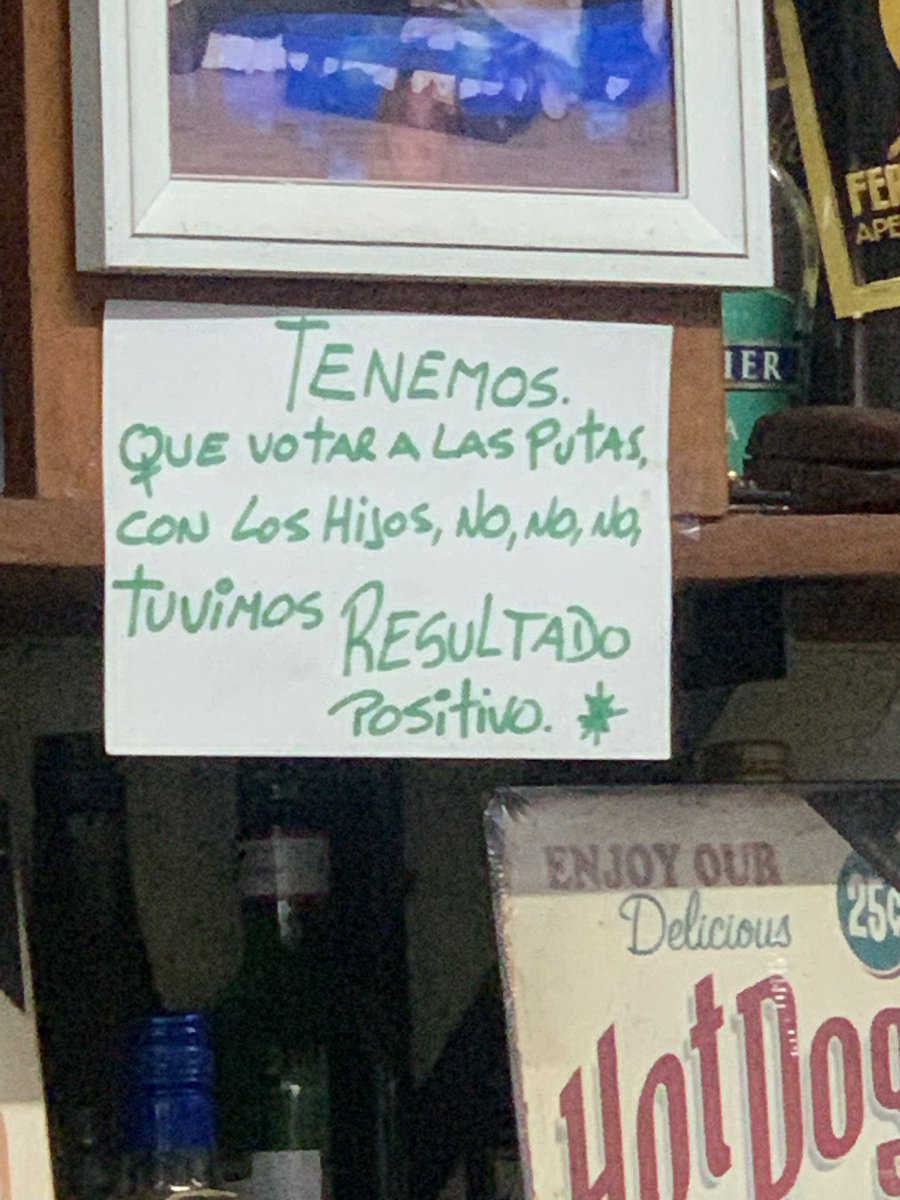 TENEMOS.
QUE VOTAR A LAS PUTAS,
CON LOS HIJOS, NO, NO, NO,
TUVIMOS RESULTADO
POSITIVO.
ENJOY OUR
Delicious
25¢
Hot Dog